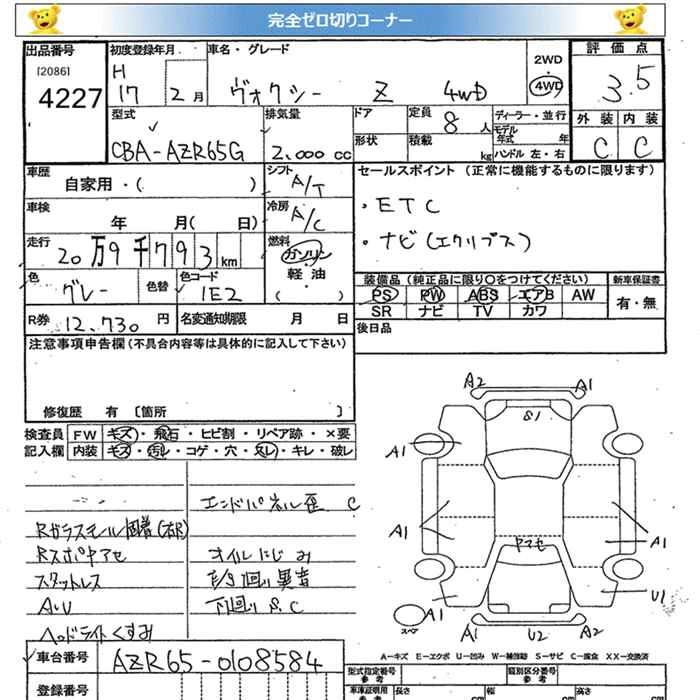 完全ゼロ切りコーナー
出品番号 初度登録年月 車名・グレード 2WD 4WD 評価点
[2086]
4227
H 17 2月 ヴォクシー Z 4WD 3.5
型式 排気量 ドア 定員 8人 ディーラー・並行 外装 内装
形状 積載 kg モデル年式 年
CBA-AZR65G 2,000cc ハンドル 左・右 C C
車歴 シフト セールスポイント (正常に機能するものに限ります)
自家用・( ) A/T
・ETC
車検 冷房
年 月( 日) A/C
・ナビ(エクリプス)
走行 燃料
20万9千793km ガソリン
軽油
( )
色 色替 色コード 装備品(純正品に限り○をつけてください) 新車保証書
グレー 1E2 PS PW ABS エアB AW 有・無
SR ナビ TV カワ
R券 12,730円 名変通知期限 月 日 後日品
注意事項申告欄(不具合内容等は具体的に記入して下さい)
修復歴 有 〔箇所 〕
検査員 FW キズ・飛石・ヒビ割・リペア跡・×要
記入欄 内装 キズ・汚れ・コゲ・穴・スレ・キレ・破レ
エンドパネル歪 C
Rガラスモール凹着(右R)
Rスポヤアセ オイルにじみ
スタットレス 異音
AU 下回りS.C
ヘッドライトくすみ
A2 A1
S1
A1
A1 ヤマセ A1
U1
スペア A1 A1 U2 A2
A-キズ E-エクボ U-凹み W-補修跡 S-サビ C-腐食 XX-交換済
車台番号 AZR65-0108584
登録番号
型式指定番号 参考 類別区分番号 参考
車庫証明用 参考 長さ cm 幅 cm 高さ cm